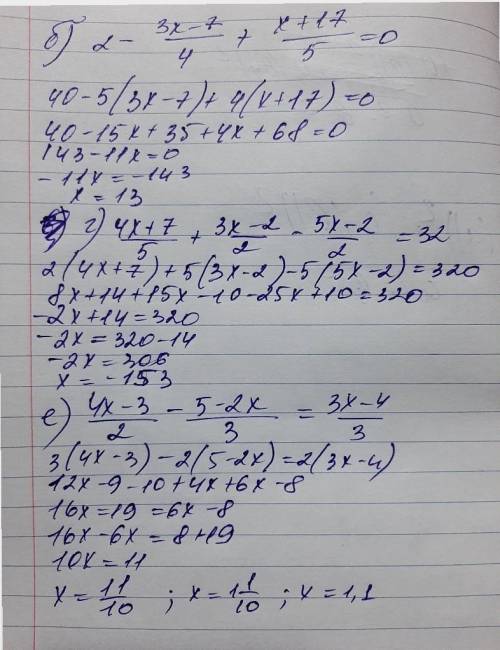 б) 2 - (3x-7)/4 + (x+17)/5 = 0
40-5(3x-7)+4(x+17)=0
40-15x+35+4x+68=0
143-11x=0
-11x=-143
x=13
г) (4x+7)/5 + (3x-2)/2 - (5x-2)/2 = 32
2(4x+7)+5(3x-2)-5(5x-2)=320
8x+14+15x-10-25x+10=320
-2x+14=320
-2x=320-14
-2x=306
x=-153
е) (4x-3)/2 - (5-2x)/3 = (3x-4)/3
3(4x-3)-2(5-2x)=2(3x-4)
12x-9-10+4x+6x-8
16x=19=6x-8
16x-6x=8+19
10x=11
x=11/10 ; x=1 1/10 ; x=1,1